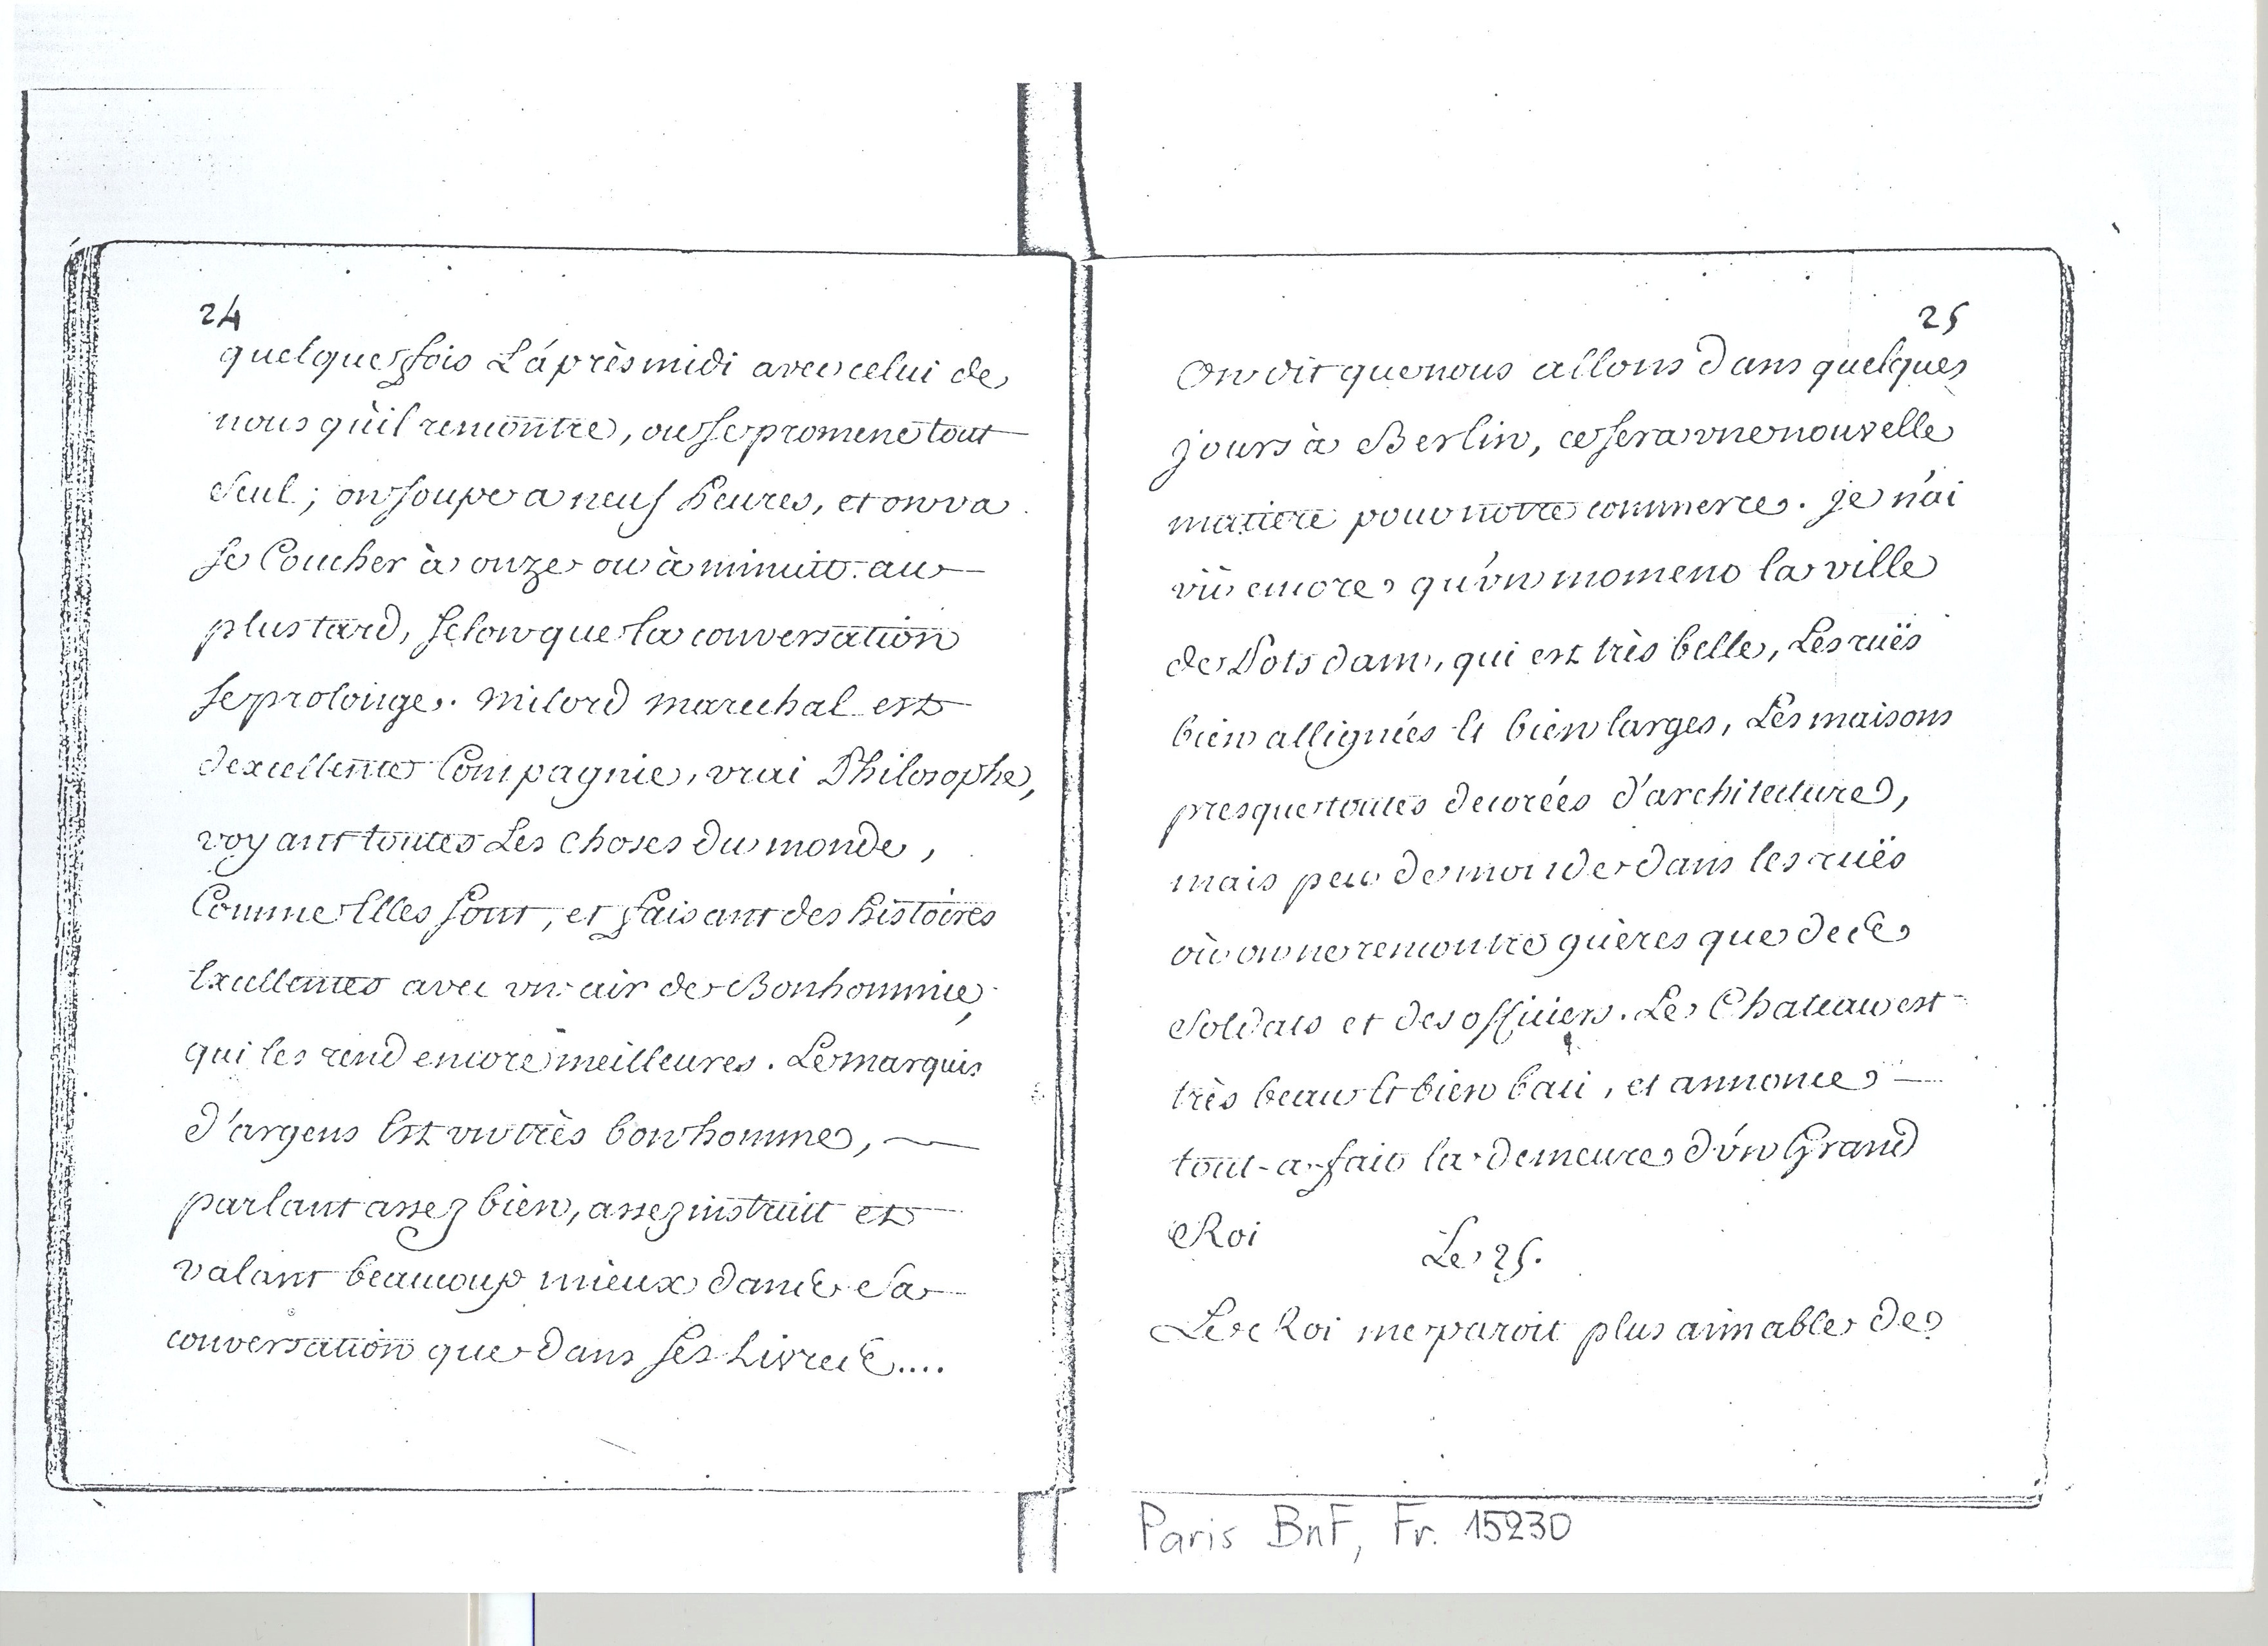 24
quelquesfois L'áprès midi avec celui de
nous qu'il rencontre, ou se promene tout
seul ; on soupe a neuf heures, et on va
se Coucher à onze ou à minuit au
plus tard, selon que la conversation
se prolonge. milord marechal est
d'excellente Compagnie, vrai Philosophe,
voyant toutes Les choses du monde,
Comme Elles sont, et faisant des histoires
Excellentes avec vn air de Bonhommie,
qui les rend encore meilleures. Le marquis
d'argens Est vn très bon homme,
parlant assez bien, assez instruit et
valant beaucoup mieux dans sa
conversation que dans ses Livres....
25
On dit que nous allons dans quelques
jours à Berlin, ce sera vne nouvelle
matiere pour notre commerce. je n'ai
vû encore qu'vn moment la ville
de Potsdam, qui est très belle, Les ruës
bien allignées Et bien larges, Les maisons
presque toutes decorées d'architecture,
mais peu de monde dans les ruës
où on ne rencontre guères que des
soldats et des officiers. Le Chateau est
très beau Et bien bati, et annonce
tout-a-fait la demeure d'vn Grand
Roi
Le 25.
Le Roi me paroit plus aimable de
Paris BnF, Fr. 15230